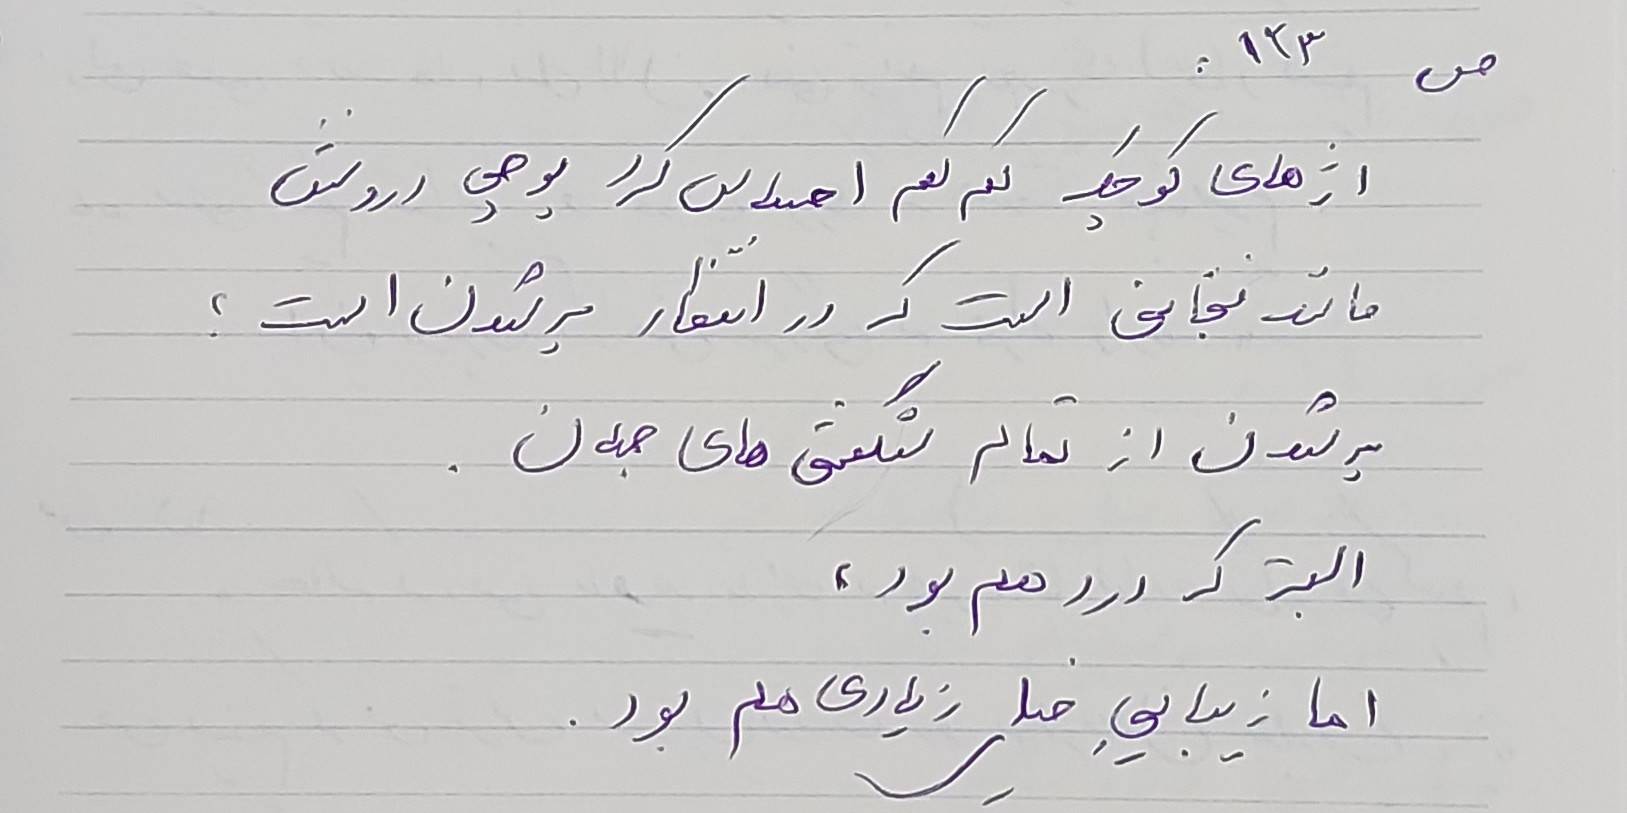 ص ۱۲۳ :
اژهای کوچک کم کم احساس کرد پوچی درونش
مانند فنجانی است که در انتظار پر شدن است ؛
پر شدن از تمام شگفتی های جهان .
البته که درد هم بود ،
اما زیباییِ خیلی زیادی هم بود .